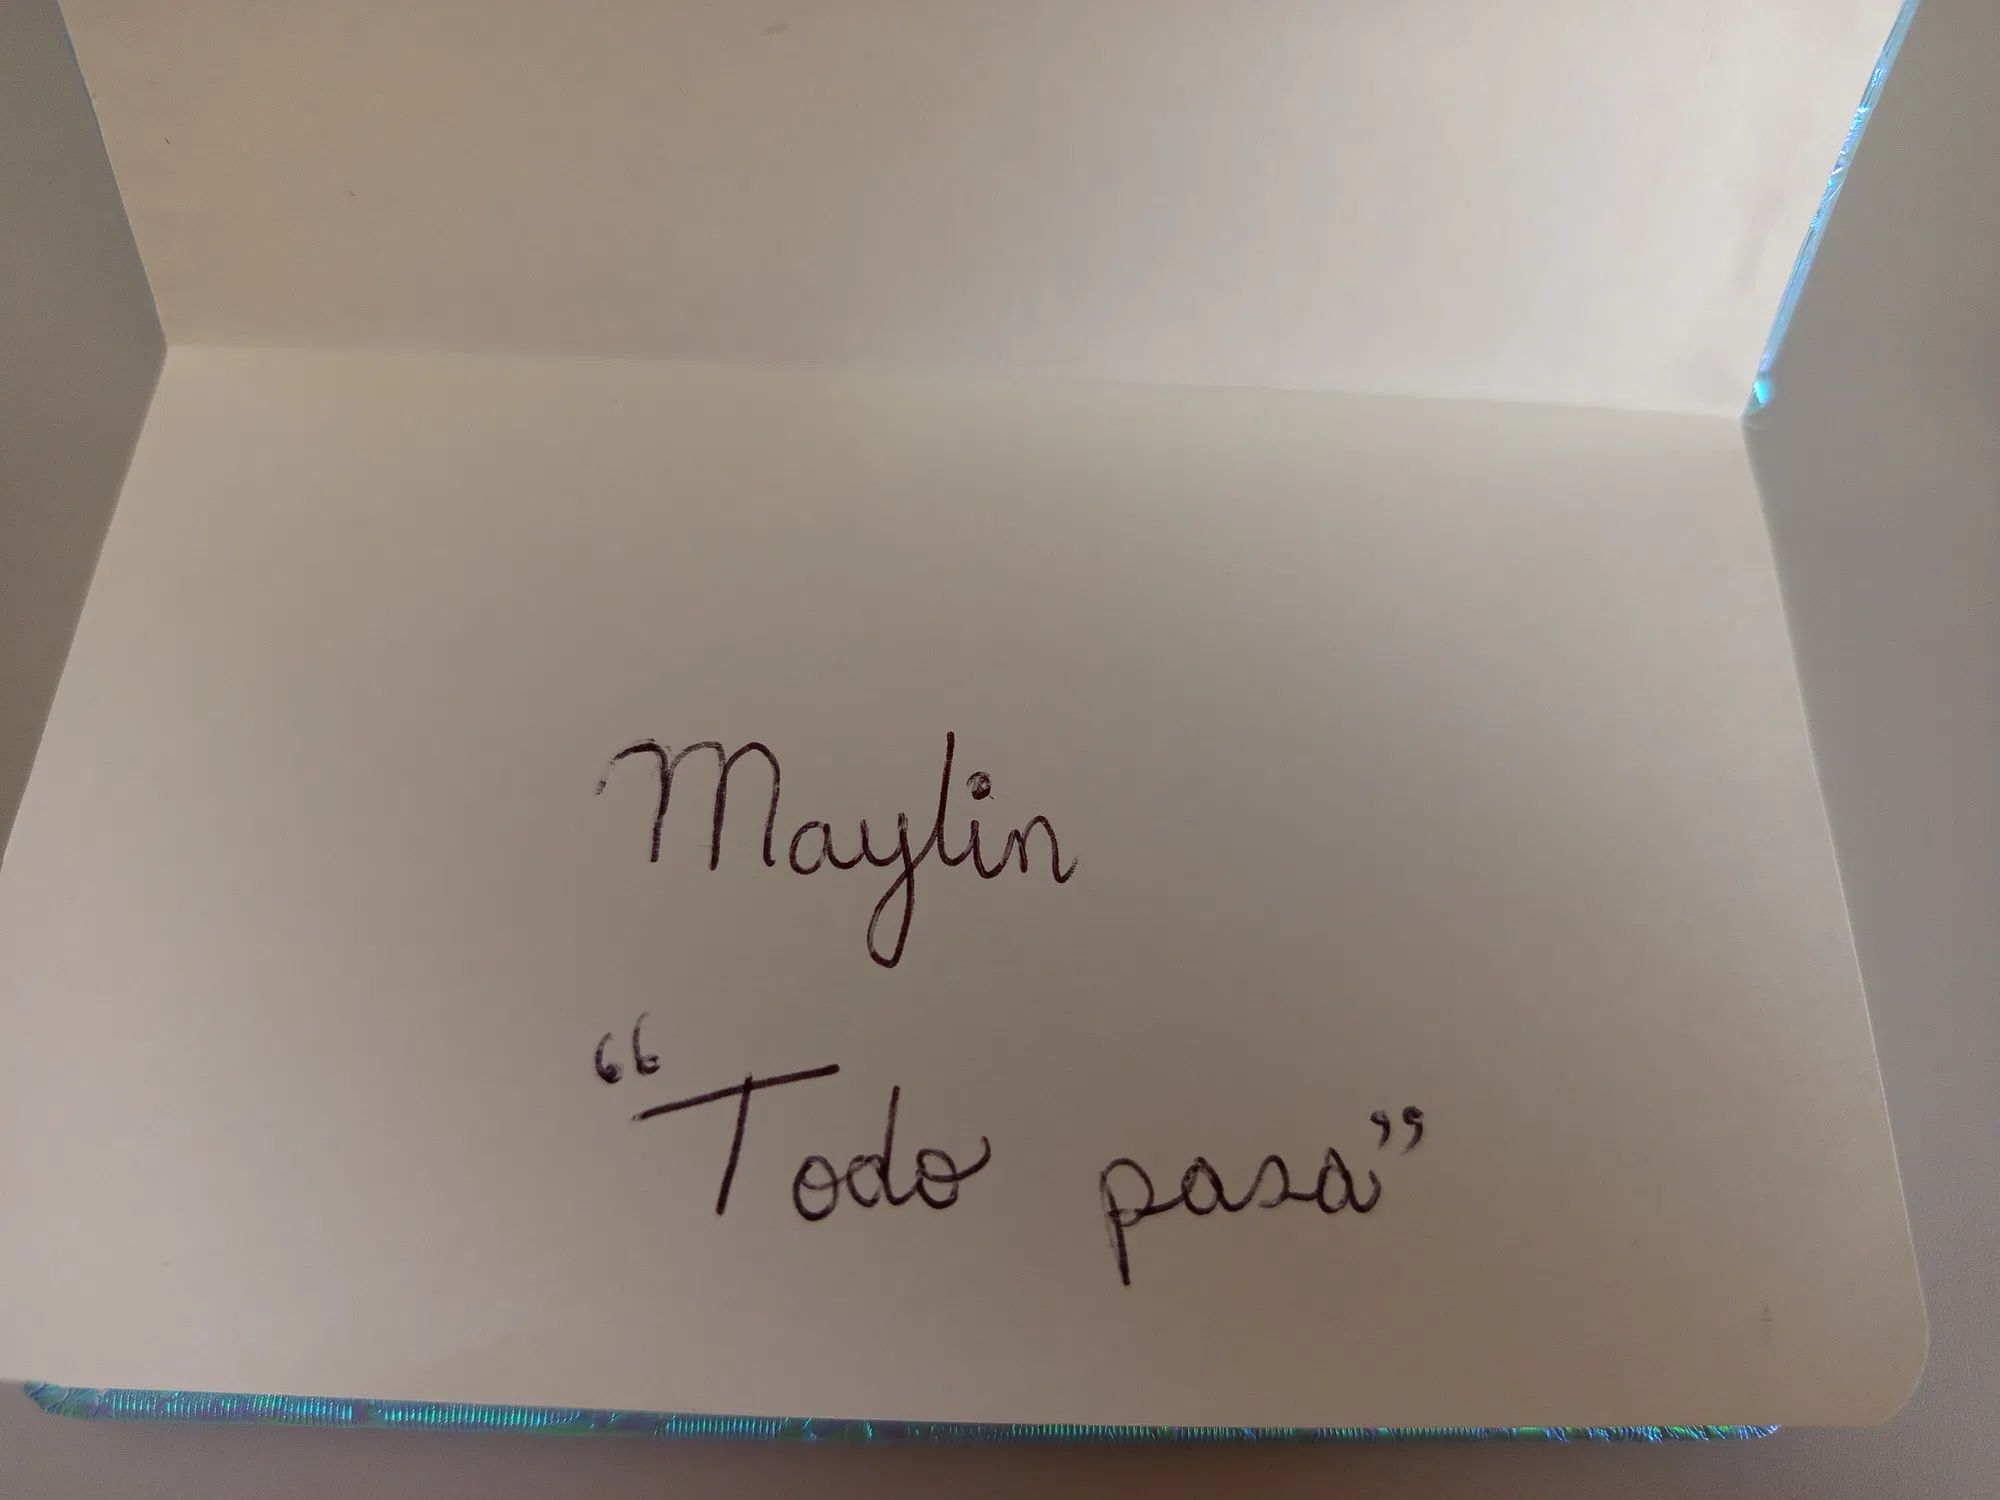 Maylin
“Todo pasa”